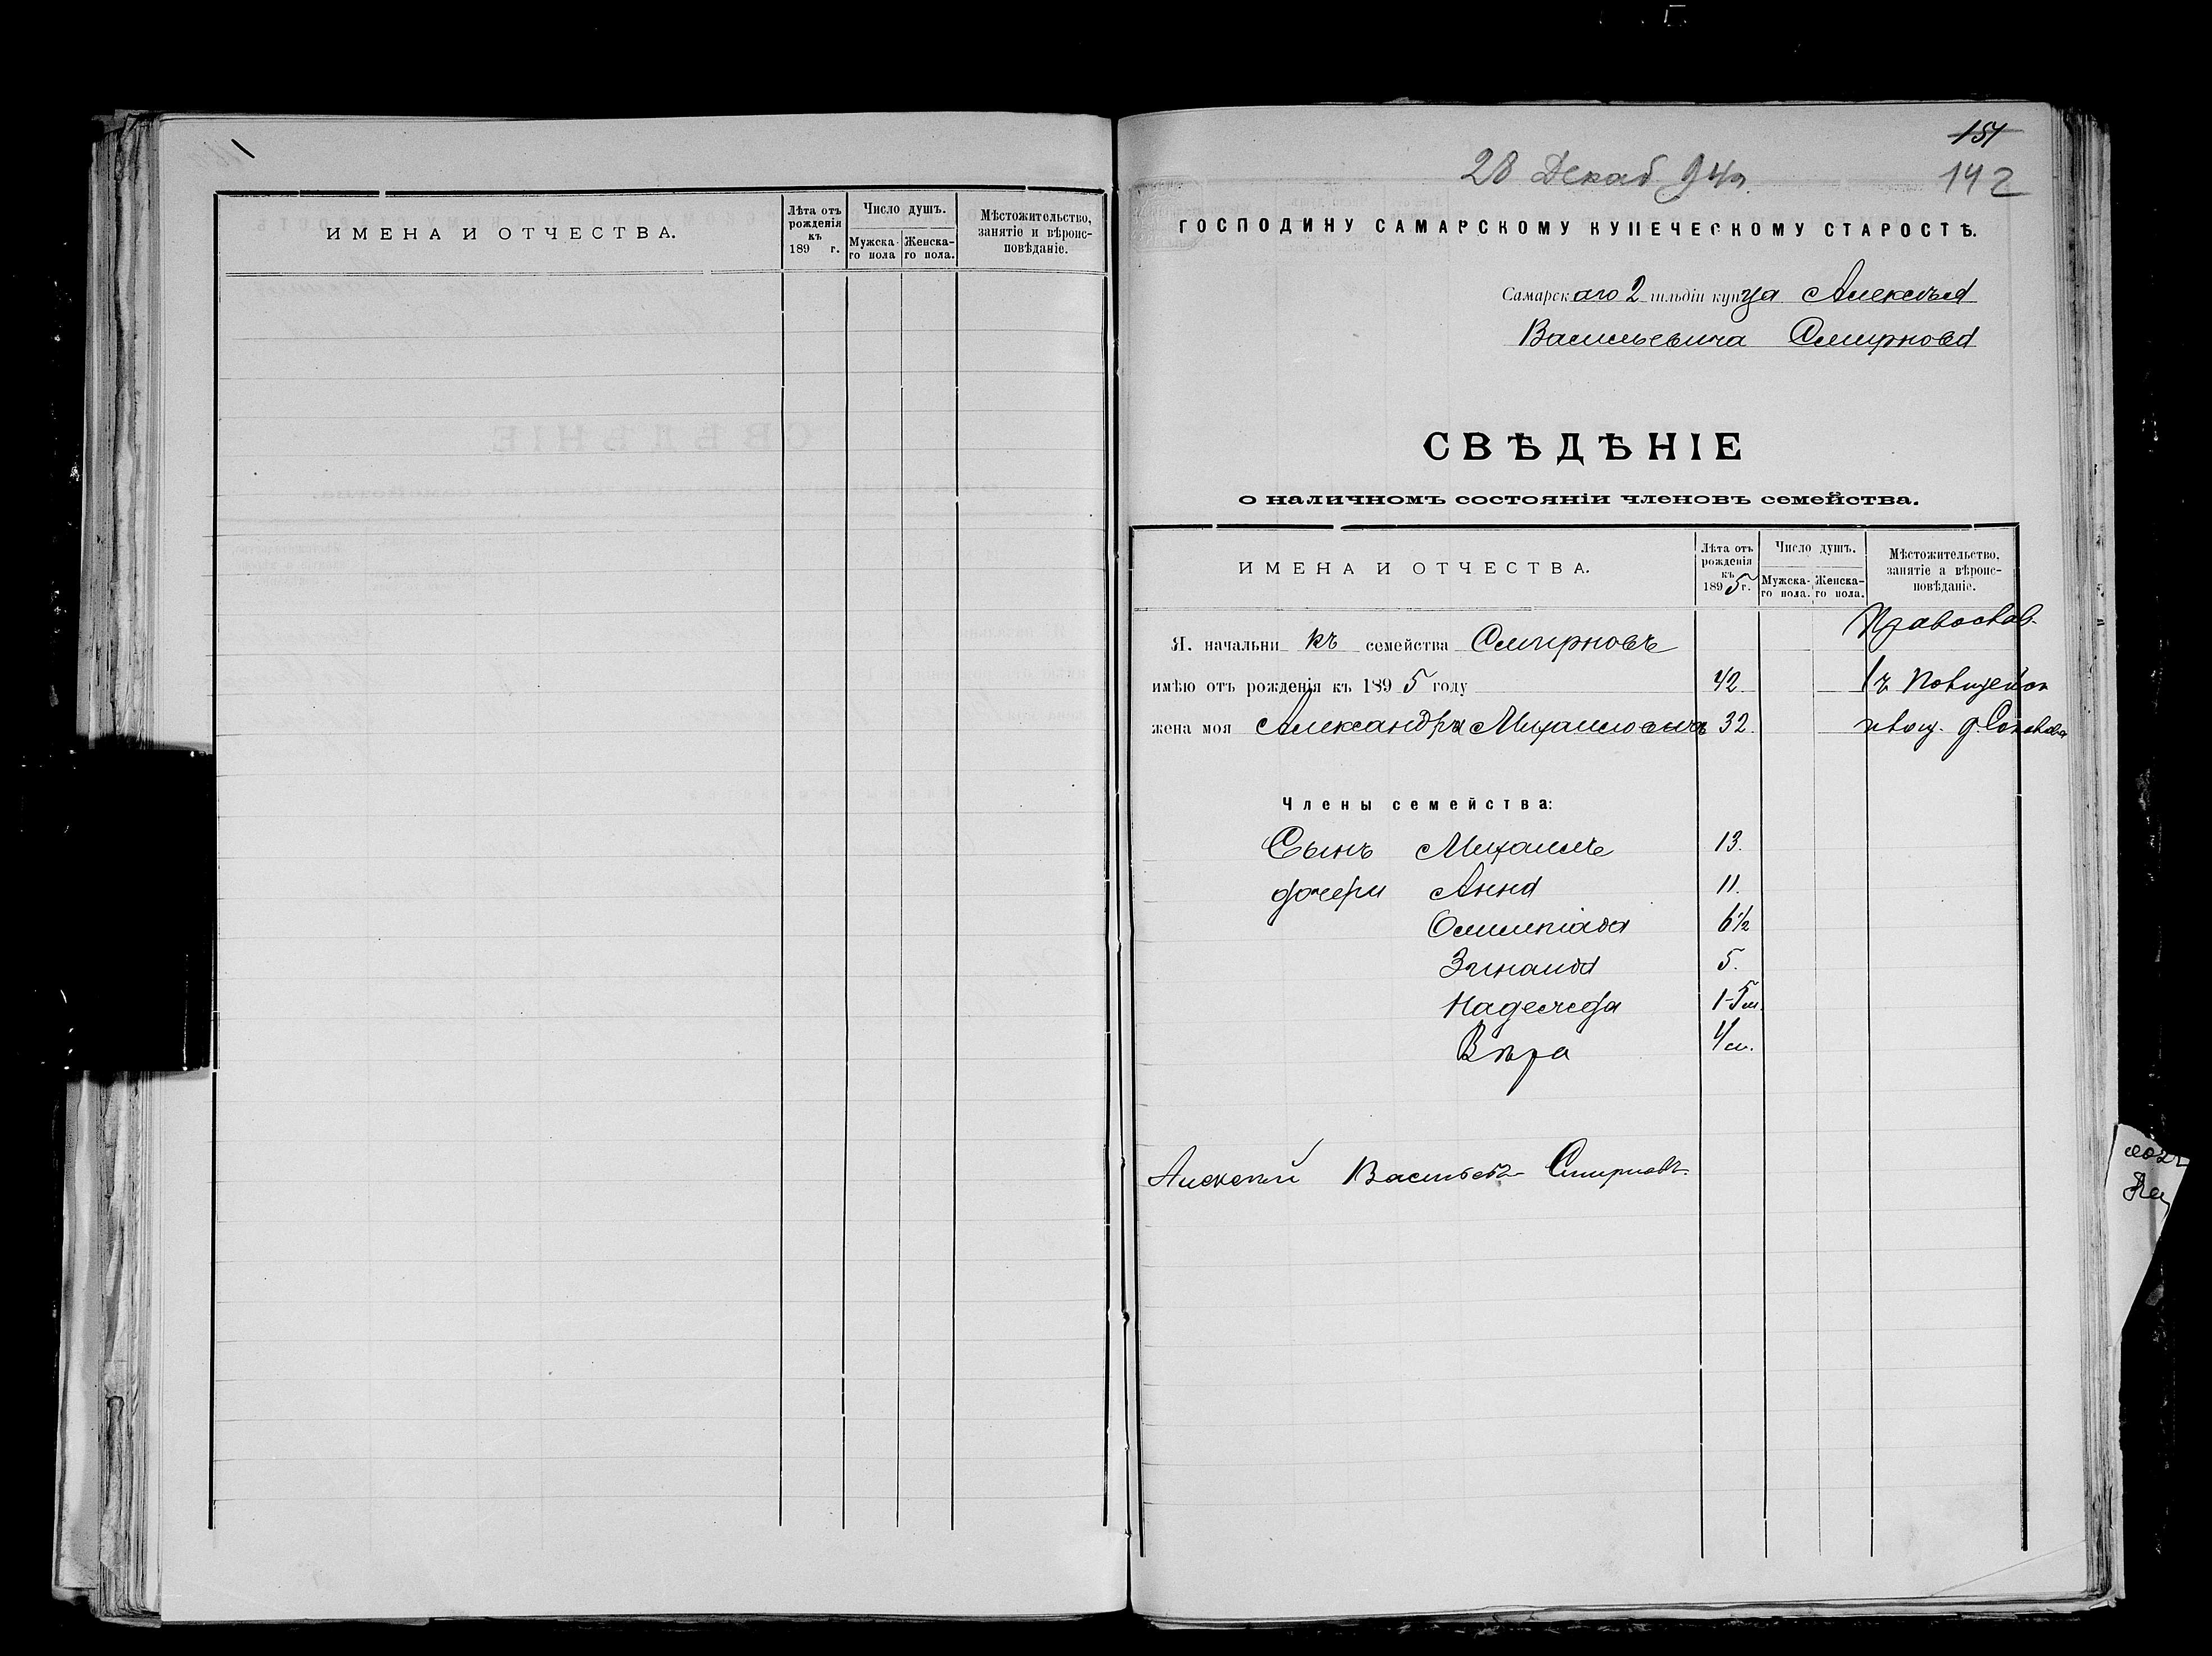 ИМЕНА И ОТЧЕСТВА.
Лѣта отъ рожденія къ 189 г.
Число душъ.
Мужска-го пола
Женска-го пола.
Мѣстожительство, занятіе и вѣроис-повѣданіе.
151
28 Декаб 94 г.
142
ГОСПОДИНУ САМАРСКОМУ КУПЕЧЕСКОМУ СТАРОСТѢ.
Самарскаго 2 гильдіи купца Алексѣя
Васильевича Смирнова
СВѢДѢНІЕ
о наличномъ состояніи членовъ семейства.
ИМЕНА И ОТЧЕСТВА.
Лѣта отъ рожденія къ 1895 г.
Число душъ.
Мужска-го пола.
Женска-го пола.
Мѣстожительство, занятіе а вѣроис-повѣданіе.
Православ.
Я, начальникъ семейства Смирновъ
имѣю отъ рожденія къ 1895 году 42 1 ч
жена моя Александра Михаиловна 32.
Члены семейства:
Сынъ Михаилъ 13.
дочери Анна 11.
Олимпіада 6½
Зинаида 5.
Надежда 1-5 м.
Вѣра 4 м.
Алексѣй Васильевъ Смирновъ.